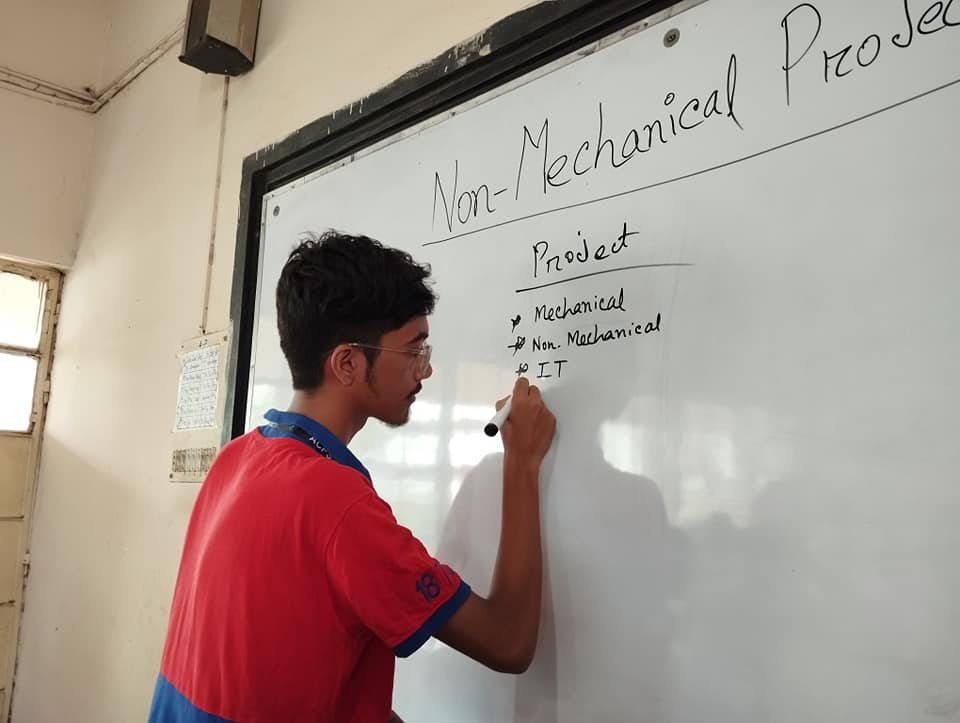 Non-Mechanical Projec
Project
Mechanical
Non. Mechanical
IT
18